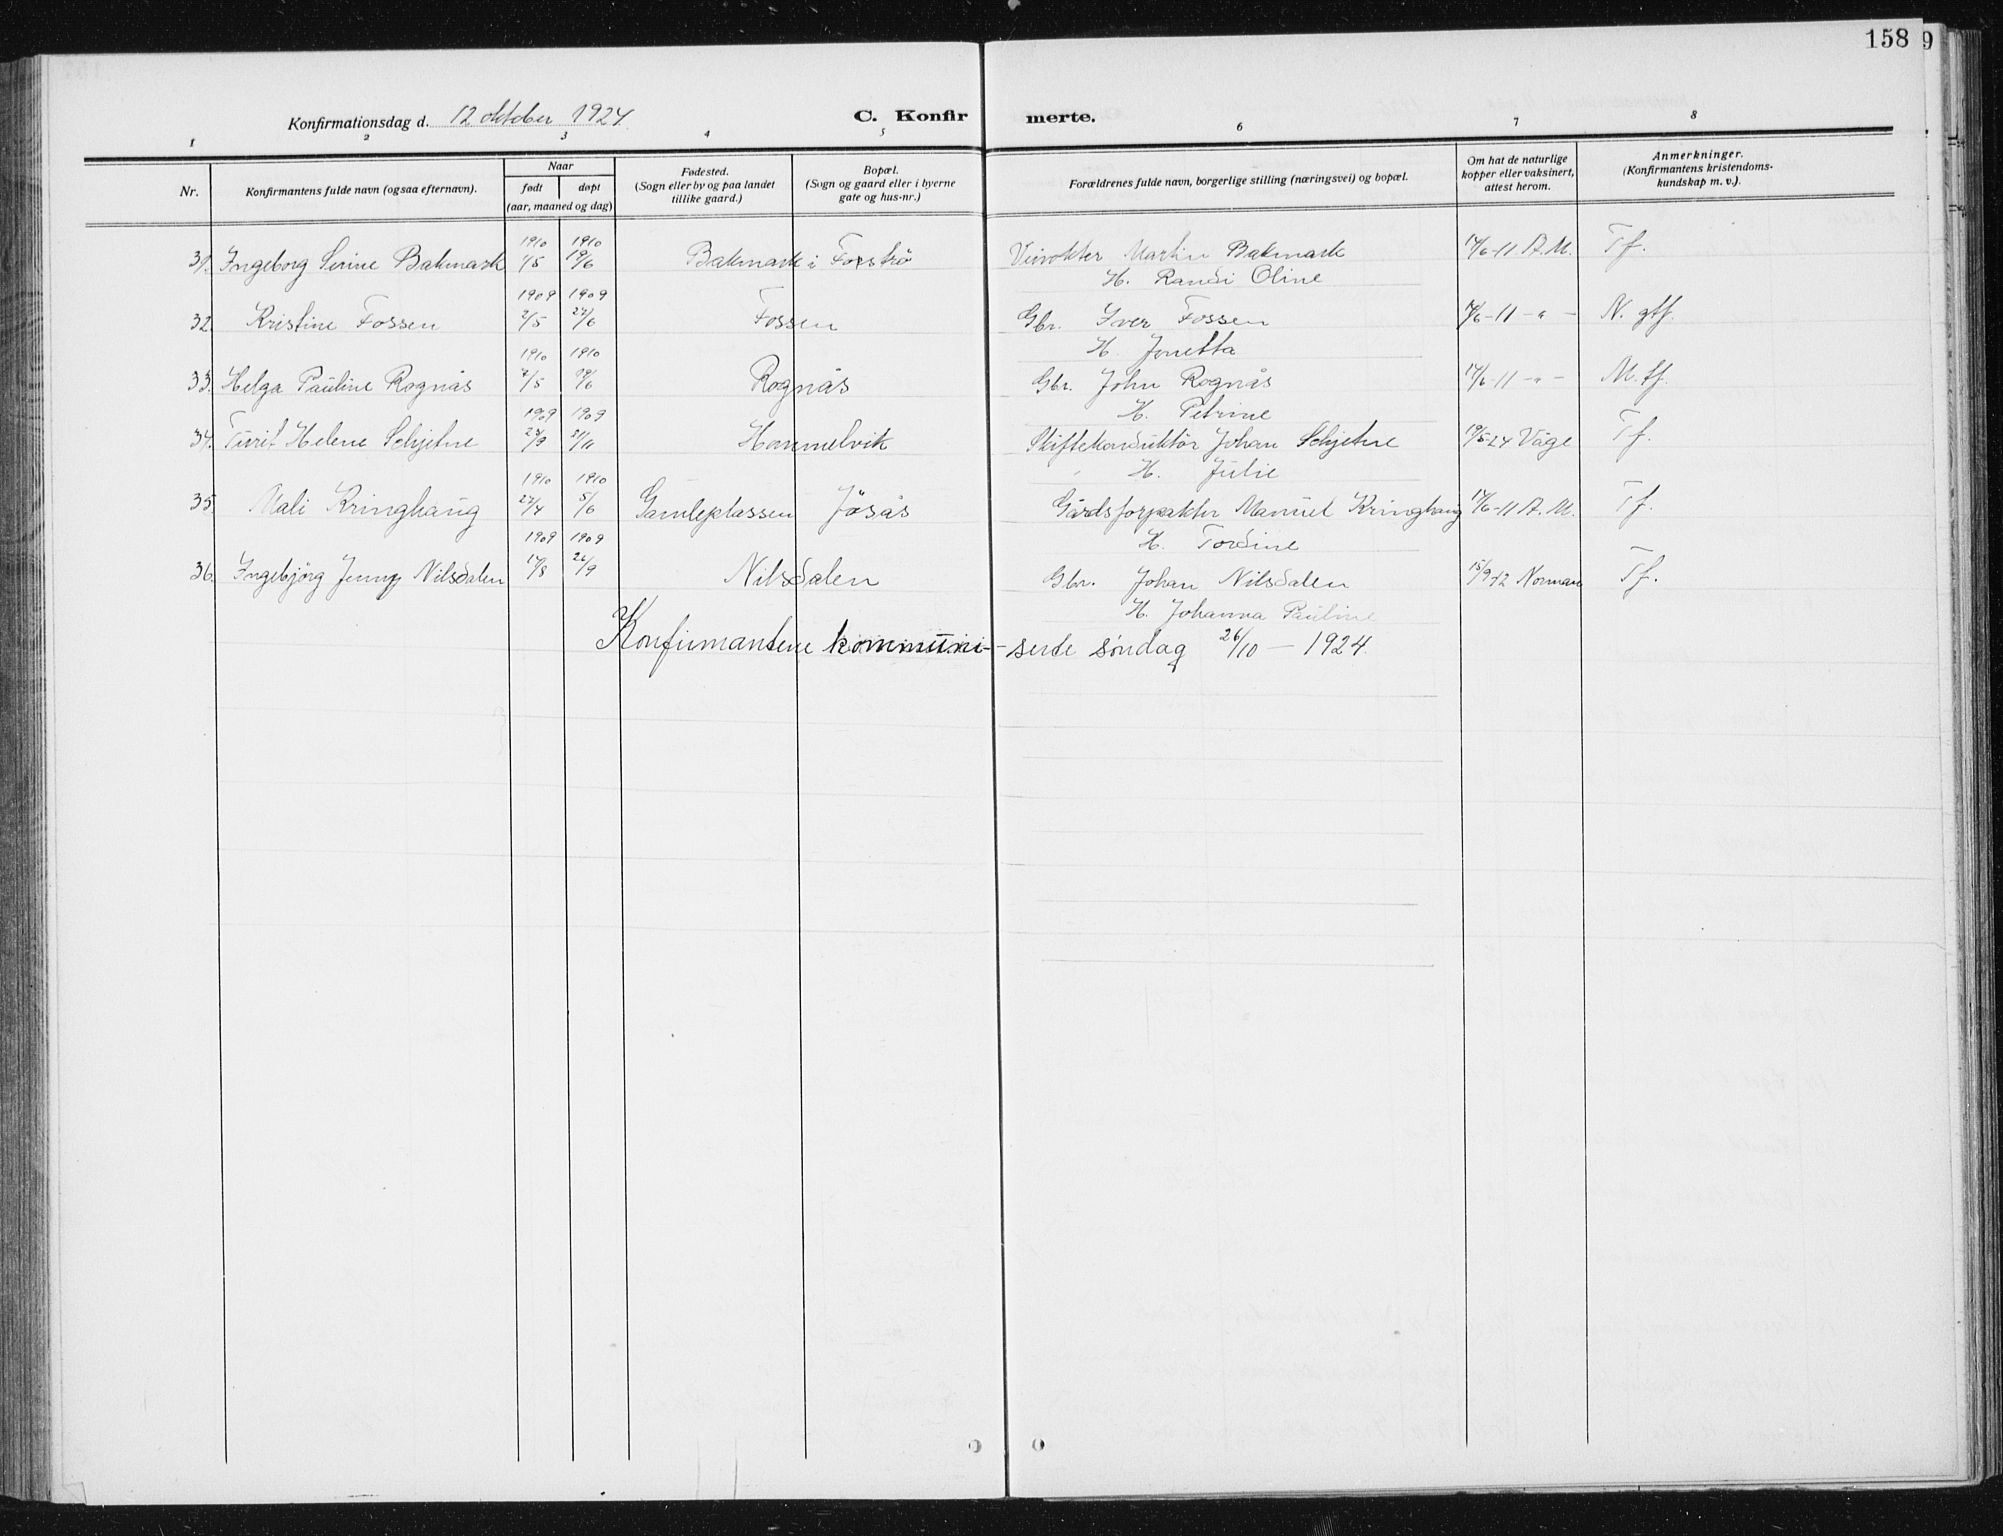 158
9
Konfirmationsdag d. 12 oktober 1924.
C. Konfirmerte.
1 2 3 4 5 6 7 8
Nr.
Konfirmantens fulde navn (ogsaa efternavn).
Naar
født
døpt
(aar, maaned og dag)
Fødested.
(Sogn eller by og paa landet
tillike gaard.)
Bopæl.
(Sogn og gaard eller i byerne
gate og hus-nr.)
Forældrenes fulde navn, borgerlige stilling (næringsvei) og bopæl.
Om hat de naturlige
kopper eller vaksinert,
attest herom.
Anmerkninger.
(Konfirmantens kristendoms-
kundskap m. v.).
1910 1910
31. Ingeborg Serine Bakmark 1/5 19/6 Bakmark i Forstrø Veivokter Martin Bakmark 17/6-11 A.M. Tf.
H. Randi Oline
1909 1909
32. Kristine Fossen 2/5 27/6 Fossen Gbr. Iver Fossen 17/6-11 -"- N. gtf.
H. Jonetta
1910 1910
33. Helga Pauline Rognås 2/5 19/6 Rognås Gbr. John Rognås 17/6-11 -"- M. tf.
H. Petrine
1909 1909
34. Turit Helene Schjetne 24/9 21/11 Hommelvik Skiftekonduktør Johan Schjetne 19/5-24 Våge Tf.
H. Julie
1910 1910
35. Mali Kringhaug 27/4 5/6 Gamleplassen Jøsås Gårdsforpakter Manuel Kringhaug 17/6-11 A.M. Tf.
H. Tordine
1909 1909
36. Ingebjørg Jenny Nilsdalen 17/8 26/9 Nilsdalen Gbr. Johan Nilsdalen 15/9-12 Norman Tf.
H. Johanna Pauline
Konfirmantene kommuni-serte søndag 26/10 - 1924.